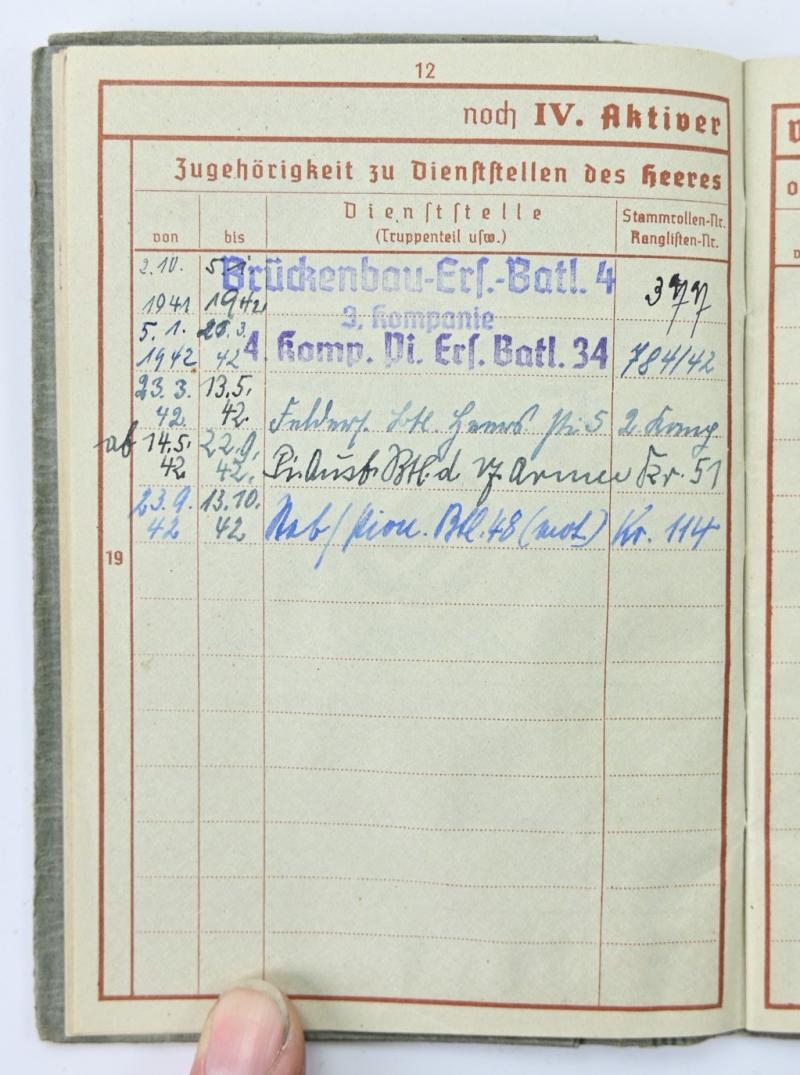 12
noch IV. Aktiver
Zugehörigkeit zu Dienststellen des Heeres
von bis Dienststelle (Truppenteil usw.) Stammrollen-Nr. Ranglisten-Nr.
2.10. 1941 5.1. 1942 Brückenbau-Ers.-Batl. 4 377
3. Kompanie
5.1. 1942 42 4. Komp. Pi. Ers. Batl. 34 784/42
23.3. 42. 13.5. 42. Felders. Btl. Heeres Pi 5 2. Komp
ab 14.5. 42 22.9. 42. Pi. Ausb. Btl. d. 17. Armee Nr. 51
23.9. 42 13.10. 42 Stab/Pion. Btl. 48 (mot.) Nr. 114
19